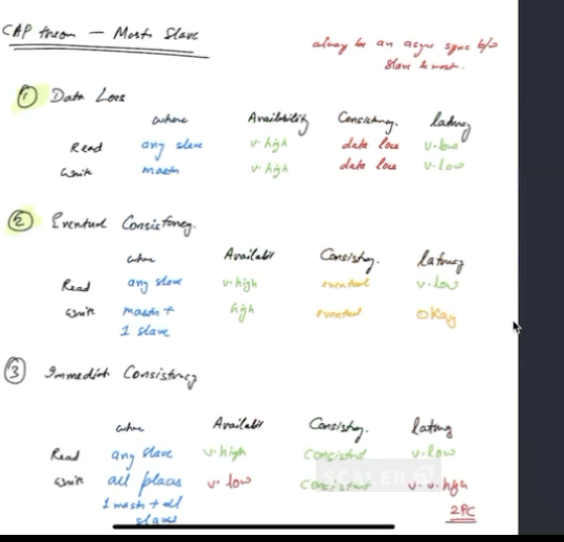 CAP theorem — Master Slave
always be an async sync b/w
slave & master.
① Data Loss
where Availability Consistency. latency
Read any slave v. high data loss v. low
Write master v. high data loss v. low
② Eventual Consistency.
where Availabili Consistency. latency
Read any slave v. high eventual v. low
Write master + high eventual Okay
1 slave
③ Immediate Consistency
where Availabili Consistency. latency
Read any slave v. high consistent v. low
Write all places v. low consistent v. v. high
1 master + all 2PC
slaves
SCALER